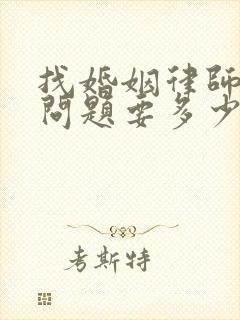 找婚姻律師
問題要多少
考斯特